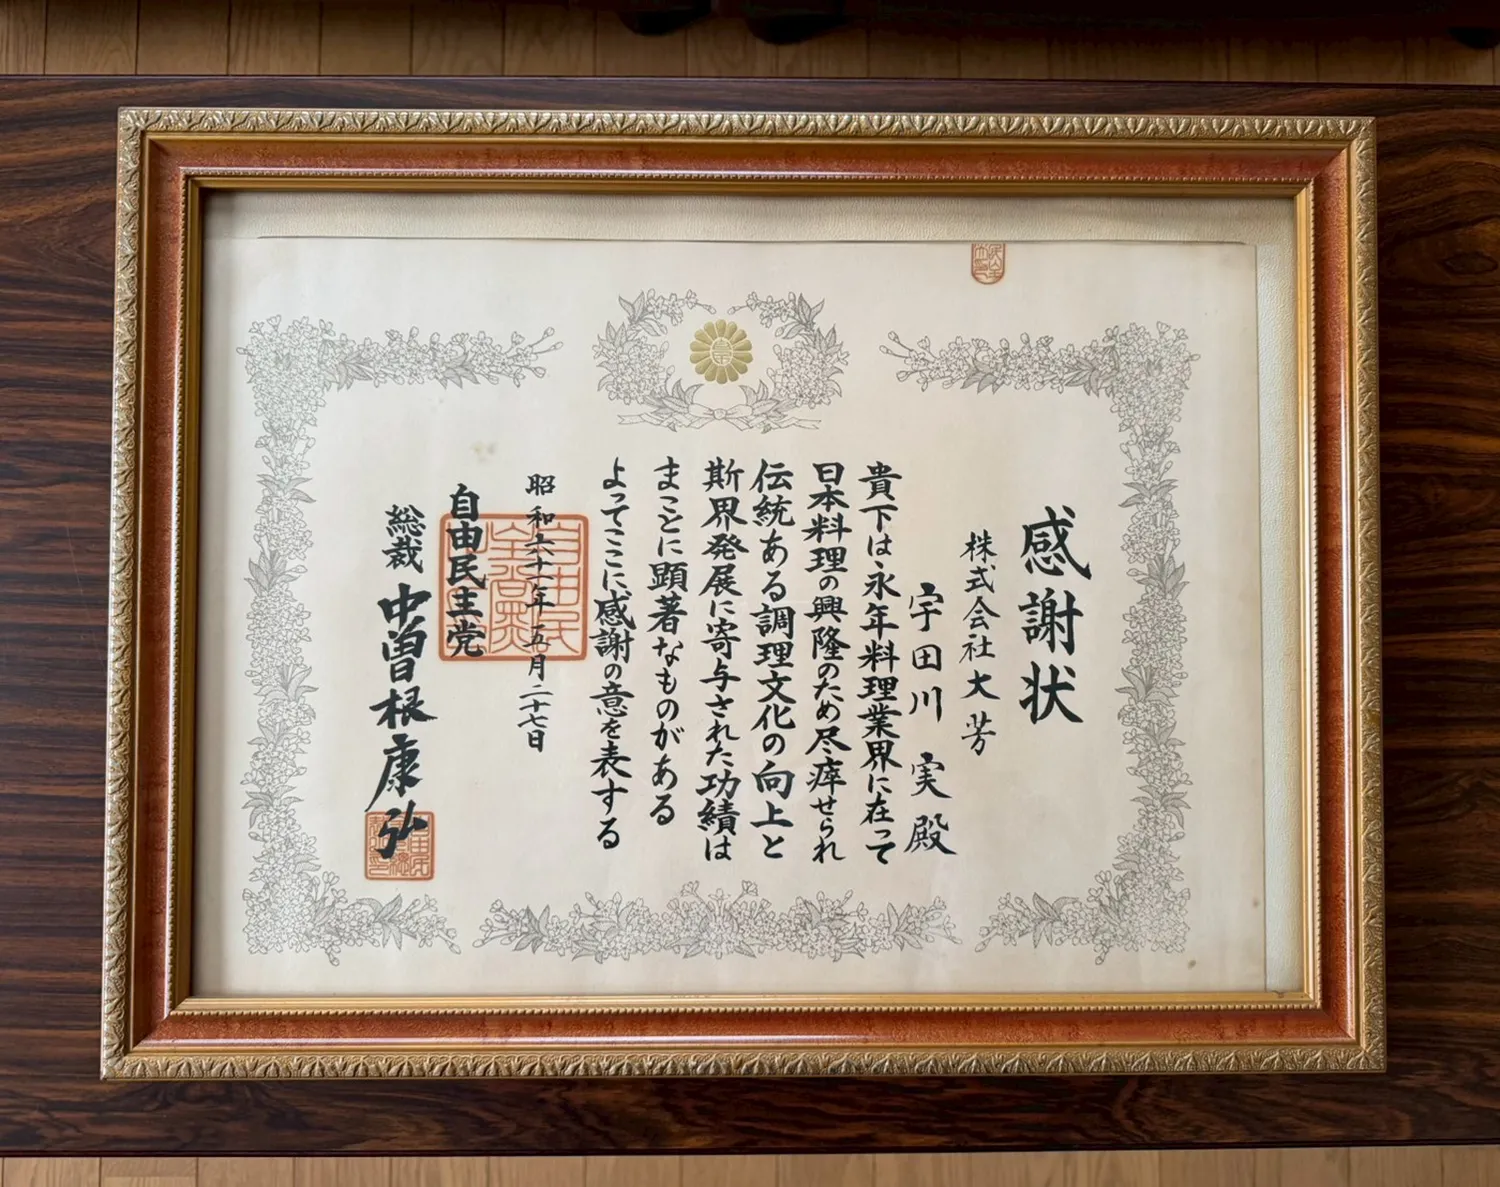 感謝状
株式会社大芳
宇田川 実殿
貴下は永年料理業界に在って
日本料理の興隆のため尽瘁せられ
伝統ある調理文化の向上と
斯界発展に寄与された功績は
まことに顕著なものがある
よってここに感謝の意を表する
昭和六十一年五月二十七日
自由民主党
総裁 中曽根康弘